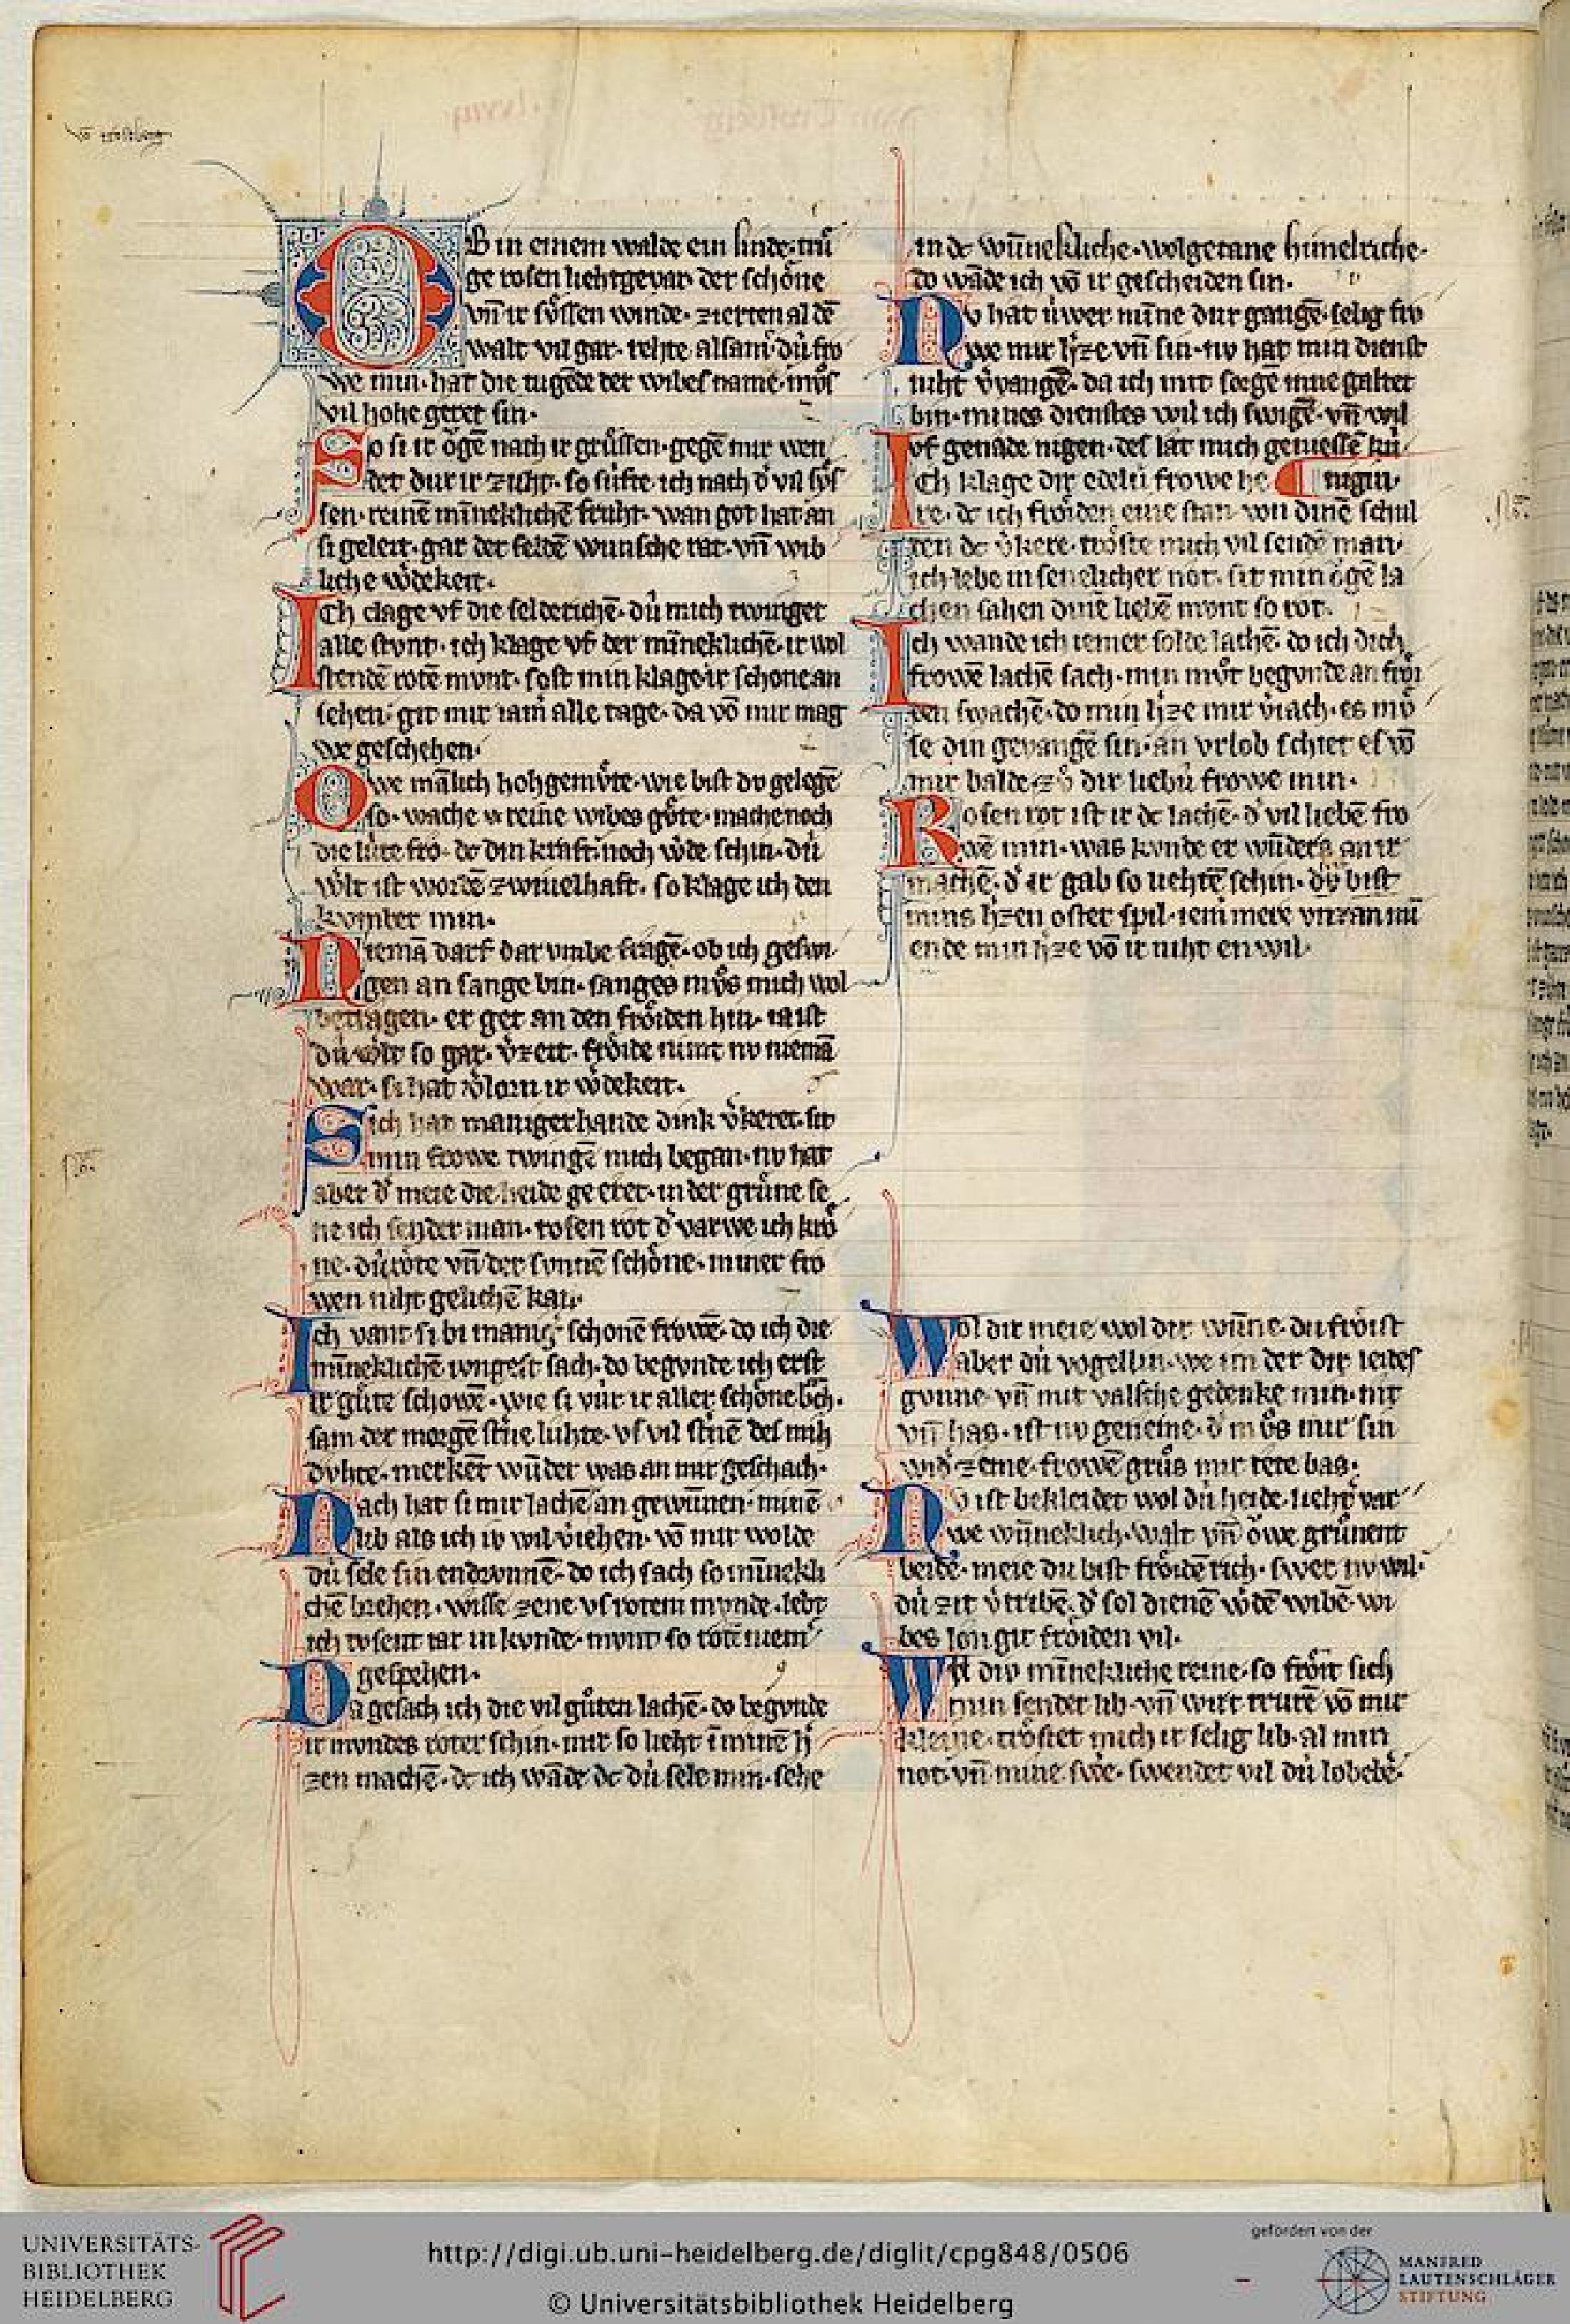 võ trostberg
OB in einem walde ein linde· trů
ge rosen liehtgevar· der schóne
vñ ir sůssen winde· zierten al dẽ
walt vil gar· rehte alsam dú fro
we min· hat die tugẽde der wibes name· mvͦs
vil hohe geret sin·
So si ir ôgẽ nach ir grůssen· gegẽ mir wen
det dur ir zuht· so súfte ich nach d̾ vil sůs
sen· reinẽ mĩneklichẽ fruht· wan got hat an
si geleit· gar der seldẽ wunsche rat· vñ wib
liche w̾dekeit·
ICh clage vf die selderichẽ· dú mich twinget
alle stvnt· ich klage vf der mĩneklichẽ· ir wol
stendẽ rotẽ mvnt· sost min klage ir schone an
sehen· git mir iam̃ alle tage· da võ mir mag
we geschehen·
Owe mãlich hohgemůte· wie bist dv gelegẽ
so· wache reine wibes gůte· mache noch
die lúte fro· dc din kraft noch w̾de schin· dú
w̾lt ist wordẽ zwiuelhaft· so klage ich den
kvmber min·
Niemã darf dar vmbe fragẽ· ob ich geswi·
gen an sange bin· sanges mvͦs mich wol
betragen· er get an den frôiden hin· ia ist
dú w̾lt so gar· v̾zeit· frôide nimt nv niemã
war· si hat v̾lorn ir w̾dekeit·
Sich hat maniger hande dink v̾keret· sit
min frowe twingẽ mich began· nv hat
aber d̾ meie die heide geeret· in der grůne se
ne ich sender man· rosen rot d̾ varwe ich krô
ne· dú rôte vñ der svnnẽ schône· miner fro
wen niht gelichẽ kan·
Ich vant si bi manig̾ schonẽ frowẽ· do ich die
mĩneklichẽ ivngest sach· do begvnde ich erst
ir gůte schowẽ· wie si vúr ir aller schône bͨh·
sam der morgẽ st̾ne luhte· vs vil st̾nẽ des mih
dvhte· merket wũder was an mir geschach·
Nach hat si mir lachẽ an gewũnen· minẽ
lib als ich iv wil v̾iehen· võ mir wolde
dú sele sin endrvnnẽ· do ich sach so mĩnekli
chẽ brehen· wisse zene vs rotem mvnde· lebt
ich tvsent iar in kvnde· mvnt so rotẽ niem̾
gespehen·
Da gesach ich die vil gůten lachẽ· do begvnde
ir mvndes roter schin· mir so lieht ĩ minẽ h̾
zen machẽ· dc ich wãde dc dú sele min· sehe
in dc wũnekliche· wolgetane himelriche·
do wãde ich võ ir gescheiden sin·
Nv hat úwer mĩne dur gangẽ· selig fro
we mir h̾ze vñ sin· nv hat min dienst
niht v̾vangẽ· da ich mit sorgẽ inne galtet
bin· mines dienstes wil ich swigẽ· vñ wil
vf genade nigen· des lat mich geniessẽ kú·
nigin·
Ich klage dir edelú frowe he
re· dc ich frôiden eine stan· von dinẽ schul
den dc v̾kere· trôste mich vil sendẽ man·
ich lebe in senelicher not· sit min ôgẽ la
chen sahen dinẽ liebẽ mvnt so rot·
Ich wande ich iemer solde lachẽ· do ich dich
frowẽ lachẽ sach· min mvͦt begvnde an frôi
den swachẽ· do min h̾ze mir v̾iach· es mvͦ
se din gevangẽ sin· an vrlob schiet es võ
mir balde· zů dir liebú frowe min·
Rosen rot ist ir dc lachẽ· d̾ vil liebẽ fro
wẽ min· was kvnde er wũders an ir
machẽ· d̾ ir gab so liehtẽ schin· dv bist
mins h̾zen oster spil· iem̾ mere vnz an mĩ
ende min h̾ze võ ir niht en wil·
Wol dir meie wol dir wũne· du frôist
aber dú vogellin· we im der dir leides
gvnne· vñ mit valsche gedenke min· nit
vñ has· ist nv gemeine· d̾ mvͦs mir sin
wid̾ zeme· frowẽ grůs mir tete bas·
Nv ist bekleidet wol dú heide· lieht̾ var
we wũneklich· walt vñ ôwe grůnent
beide· meie du bist frôidẽ rich· swer nv wil·
dú zit v̾tribẽ· d̾ sol dienẽ w̾dẽ wibẽ· wi
bes lon git frôiden vil·
Wil div mĩnekliche reine· so frôit sich
min sender lib· vñ wirt trurẽ võ mir
kleine· trôstet mich ir selig lib· al min
not· vñ mine sw̾e· swendet vil dú lobebe̾·
UNIVERSITÄTS-
BIBLIOTHEK
HEIDELBERG
http://digi.ub.uni-heidelberg.de/diglit/cpg848/0506
© Universitätsbibliothek Heidelberg
gefördert von der
MANFRED
LAUTENSCHLÄGER
STIFTUNG